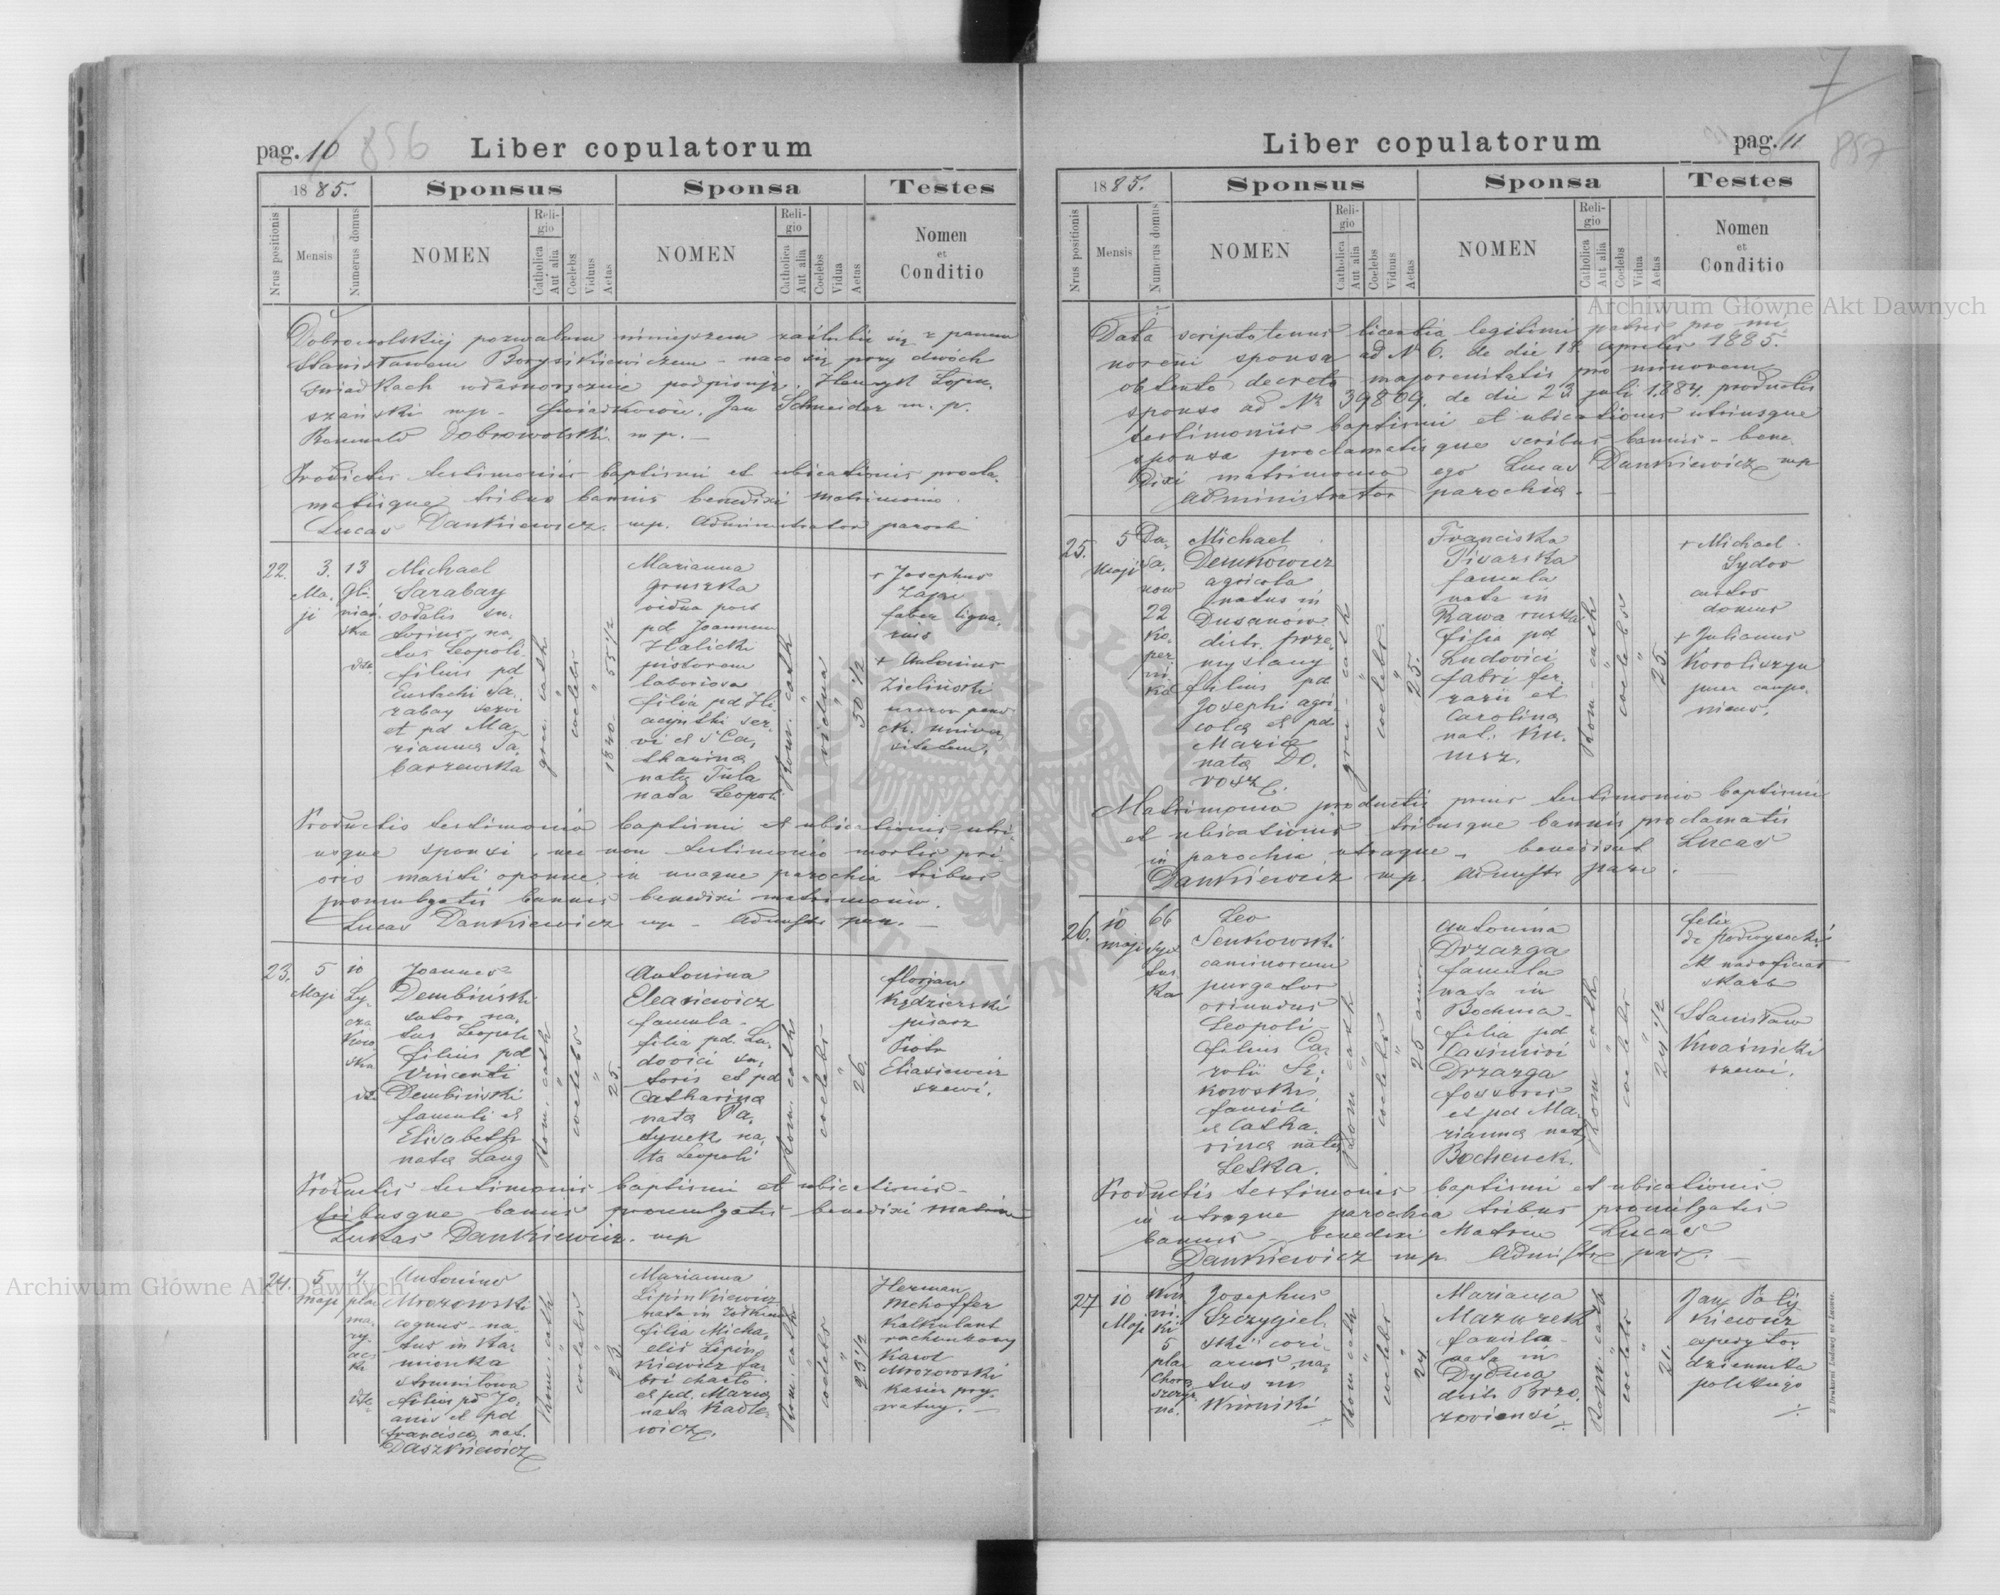 pag. 10
856
Liber copulatorum
1885.
Sponsus
Sponsa
Testes
Nrus positionis
Mensis
Numerus domus
NOMEN
Religio
Catholica
Aut alia
Coelebs
Viduus
Aetas
NOMEN
Religio
Catholica
Aut alia
Coelebs
Vidua
Aetas
Nomen
et
Conditio
Dobrowolskiej pozwalam niniejszem zaślubić się z panem
Stanisławem Borysikiewiczem - na co się przy dwóch
świadkach własnoręcznie podpisuję. Henryk
mp - Świadkowie. Jan Schneider m. p.
Romuald Dobrowolski. mp. —
Productis testimoniis baptismi et ubicationis procla-
matisque tribus bannis benedixi matrimonio.
Lucas Dankiewicz. mp. Administrator parochi
22.
3.
Ma-
ji
13
Gli-
niań-
ska
Michael
Sarabay
sodalis su-
torius, na-
tus Leopoli
filius pd
Eustachi Sa-
rabay servi
et pd Ma-
rianna
gr. cath
coelebs
"
1840. 55 1/2
Marianna
Gruszka
vidua post
pd Joannem
Halicki
pistorem
laboriosa
filia pd Hi-
acynthi ser-
vi et Ca-
tharina
nata Tula
nata Leopoli
Rom. cath
"
vidua
50 1/2
+ Josephus
Zając
faber ligna-
rius
+ Antonius
Zieliński
Productis testimoniis baptismi et ubicationis utri-
usque sponsi, nec non testimonio mortis pri-
oris mariti sponsae, in utraque parochia tribus
promulgatis bannis benedixi matrimonio.
Lucas Dankiewicz mp - Admstr par. —
23.
5
Maji
10
Ły-
cza
kow
ska
Joannes
Dembiński
sutor na-
tus Leopoli
filius pd
Vincenti
Dembiński
famuli et
Elisabeth
nata Lang
Rom. cath
"
coelebs
"
25.
Antonina
Eleasiewicz
famula -
filia pd. Lu-
dovici su-
toris et pd
Catharina
nata Pa-
na-
ta Leopoli
Rom. cath
"
coelebs
"
26.
Florjan
Kędzierski
pisarz
Piotr
Eliasiewicz
szewc.
Productis testimoniis baptismi et ubicationis -
tribusque bannis promulgatis benedixi matrim
Lukas Dankiewicz. mp
24.
5
maji
4.
plac
ma-
ry-
ac-
ki
Antonius
Mrozowski
coquus - na-
tus in Ka-
mionka
strumiłowa
filius pd Jo-
anis et pd
Francisca nat.
Daszkiewicz
Rom. cath
"
coelebs
"
23
Marianna
Lipinkiewicz
nata in Żółkiew
filia Micha-
elis Lipin-
kiewicz fa-
bri
et pd. Maria
nata Kadle-
wicz.
Rom. cath
"
coelebs
"
23 1/2
Herman
Mehoffer
Kalkulant
rachunkowy
Karol
Mrozowski
Kasier pry-
watny. —
Liber copulatorum
pag. 11
857
7
1885.
Sponsus
Sponsa
Testes
Nrus positionis
Mensis
Numerus domus
NOMEN
Religio
Catholica
Aut alia
Coelebs
Viduus
Aetas
NOMEN
Religio
Catholica
Aut alia
Coelebs
Vidua
Aetas
Nomen
et
Conditio
Data scriptotenus licentia legitimi patris pro mi-
noreni sponsa ad N 6. de die 18. aprilis 1885.
obtento decreto majorenitatis pro minorem
sponso ad Nr 39809. de die 23 juli 1.884. productis
testimoniis baptismi et ubicationis utriusque
sponsa proclamatisque tribus bannis - bene-
dixi matrimonio ego Lucas Dankiewicz mp
Administrator parochia. —
25.
5
Maji
22
Ko-
per
ni-
ka
Michael
Demkowicz
agricola
natus in
Dusanów
distr. prze-
myslany
filius pd
Josephi agri-
cola et pd
Maria
nata Do-
rosz.
gr. - cath
"
coelebs.
"
25.
Franciska
Pisarska
famula
nata in
Rawa ruska
filia pd
Ludovici
fabri fer-
rarii et
Carolina
nat. Ku-
Rom. - cath
"
coelebs
"
25.
+ Michael
Sydor
custos
domus
+ Julianus
Koroliszyn
puer caupo-
nicus.
Matrimonio productis prius testimonio baptismi
et ubicationis tribusque bannis proclamatis
in parochia utraque - benedixit Lucas
Dankiewicz mp. Admstr paro. —
26.
10
maji
66
Syx-
tus-
ka
Leo
Senkowski
caminorum
purgator
oriundus
Leopoli
filius Ca-
roli Se-
kowski
famuli
et Catha-
rina nata
Letka.
Rom cath
"
coelebs
"
25 anno
Antonina
Drzazga
famula
nata in
Bochnia -
filia pd
Casimiri
Drzazga
fossoris
et pd Ma-
rianna nat.
Bochenek.
Rom cath
"
coelebs
"
24 1/2
Felix
de Podwysocki
skarb
Stanisław
Kwaśnicki
szewc.
Productis testimoniis baptismi et ubicationis
in utraque parochia tribus promulgatis
bannis benedixi Matrim Lucas
Dankiewicz mp. Admistr par. —
27
10
Maji
5
plac
Josephus
Szczygiel-
ski cori-
arius, na-
tus in
Winniki
Rom cath
"
coelebs
"
24
Marianna
Mazurek
famula -
nata in
Dydnia
distr Brzo-
zoviensi
Rom. cath
"
coelebs
"
21.
Jan Paly-
kiewicz
expedytor
dziennika
polskiego
Z Drukarni Ludowej we Lwowie.
Archiwum Główne Akt Dawnych
Archiwum Główne Akt Dawnych
ARCHIWUM GŁÓWNE AKT DAWNYCH